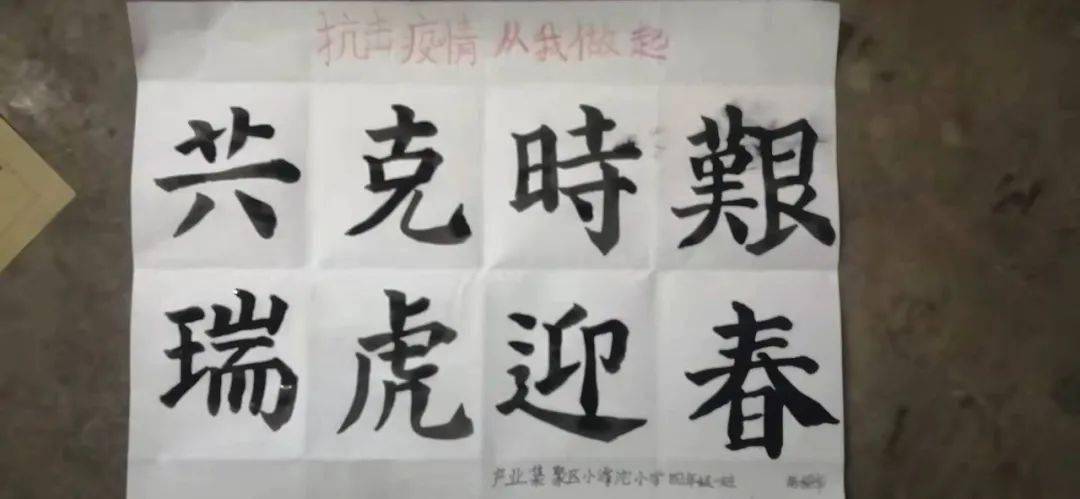 抗击疫情从我做起
共克時艱
瑞虎迎春
产业集聚区小滹沱小学四年级一班